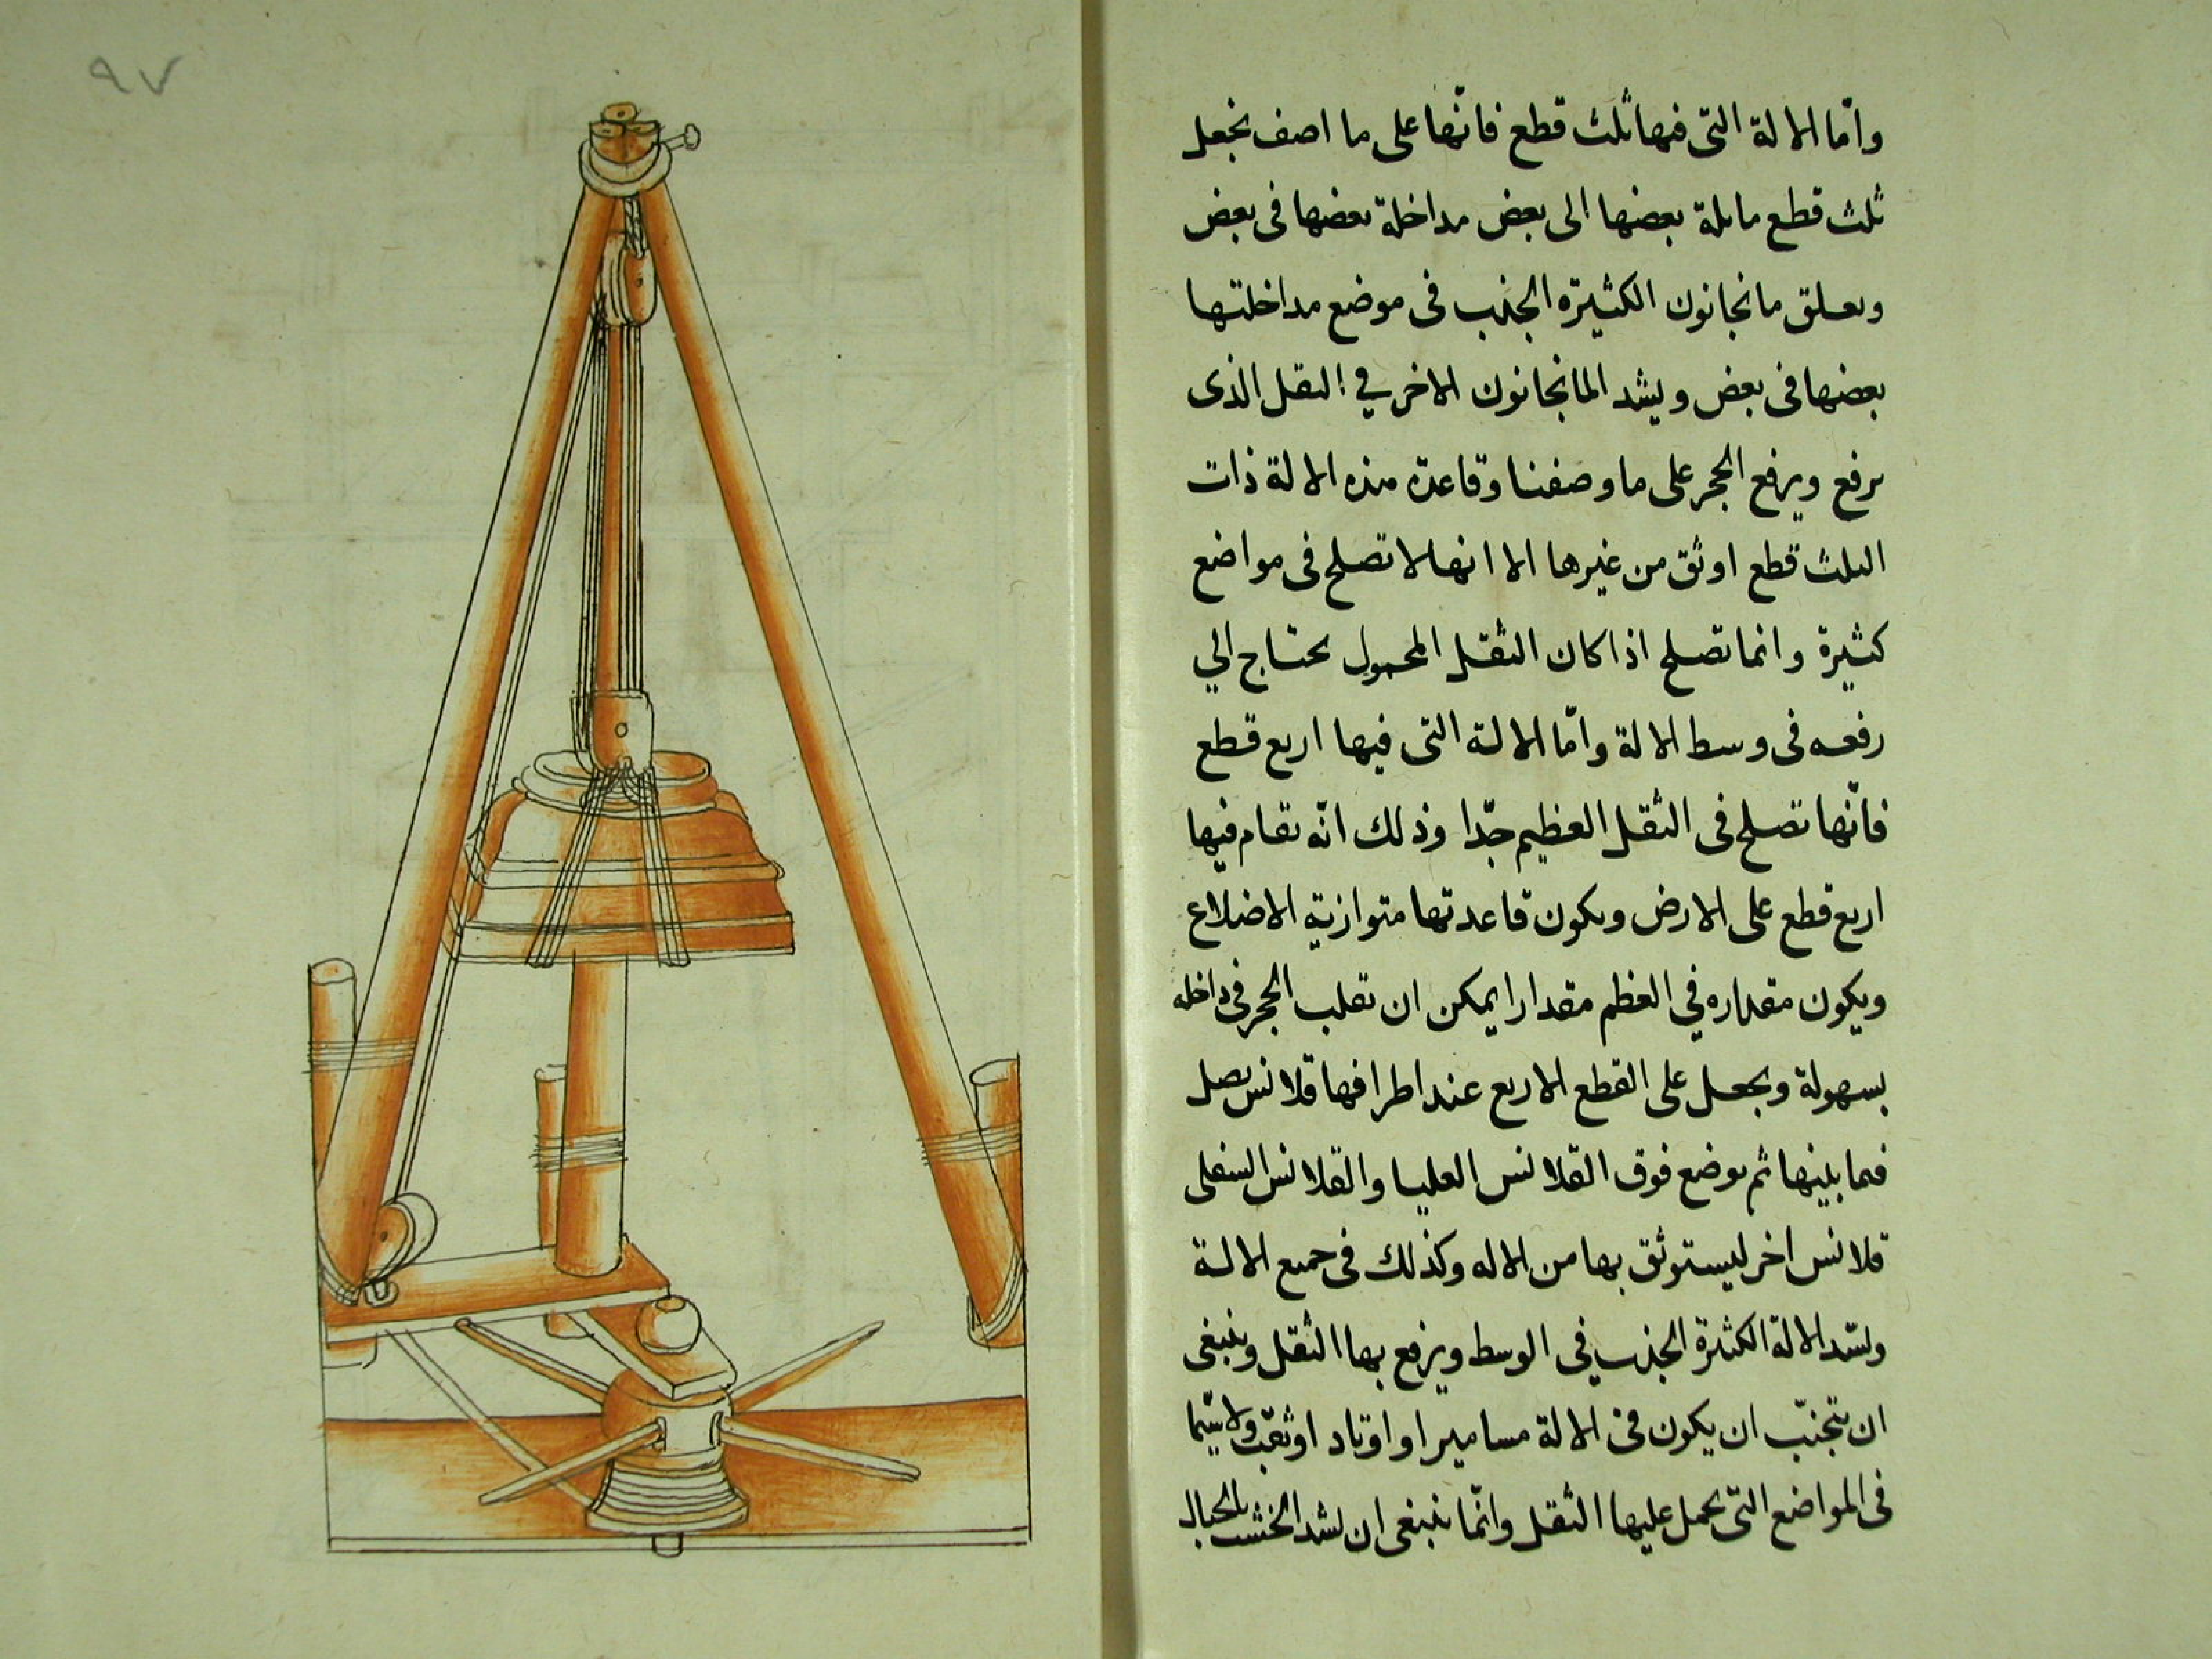 وامّا الالة التى فيها ثلث قطع فانّها على ما اصف نجعل
ثلث قطع مايلة بعضها الى بعض مداخلة بعضها فى بعض
وبعلق مانجانون الكثيرة الجذب فى موضع مداخلتها
بعضها فى بعض ويشد المانجانون الاخر في الثقل الذى
يرفع ويرفع الحجر على ما وصفنا وقاعدة هذه الالة ذات
الثلث قطع اوثق من غيرها الا انها لا تصلح فى مواضع
كثيرة وانما تصلح اذا كان الثقل المحمول يحتاج الي
رفعه فى وسط الالة وامّا الالة التى فيها اربع قطع
فانّها تصلح فى الثقل العظيم جّدا وذلك انّه تقام فيها
اربع قطع على الارض ويكون قاعدتها متوازية الاضلاع
ويكون مقداره في العظم مقدارا يمكن ان تقلب الحجر فى داخله
بسهولة ويجعل على القطع الاربع عند اطرافها قلانس يصل
فيما بينها ثم يوضع فوق القلانس العليا والقلانس السفلى
قلانس اخر ليستوثق بها من الاله وكذلك فى جميع الالة
وتشد الالة الكثيرة الجذب في الوسط ويرفع بها الثقل وينبغى
ان يتجنّب ان يكون فى الالة مسامير او اوتاد او ثقب ولا سيّما
فى المواضع التى يحمل عليها الثقل وانّما ينبغى ان يشد الخشب بالحبال
٩٧